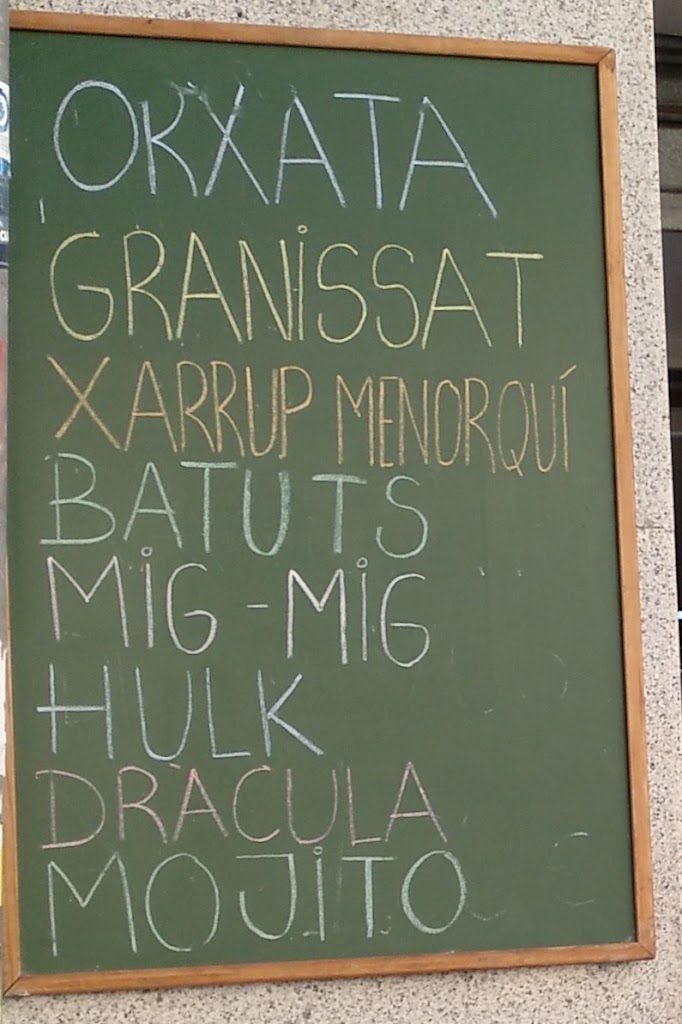 ORXATA
GRANISSAT
XARRUP MENORQUÍ
BATUTS
MiG - MiG
HULK
DRÀCULA
MOJiTO